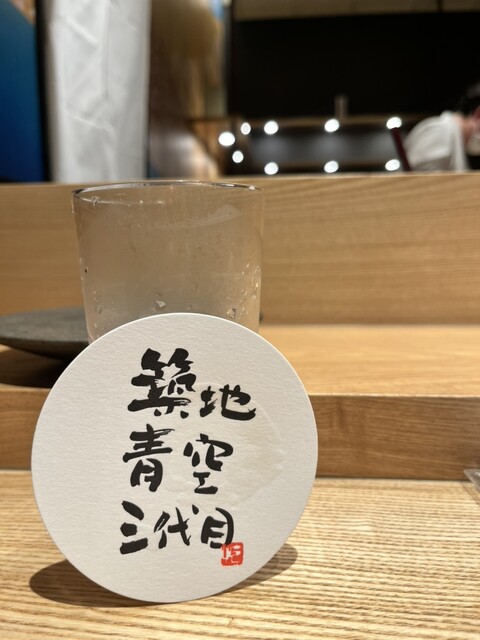 築地
青空
三代目